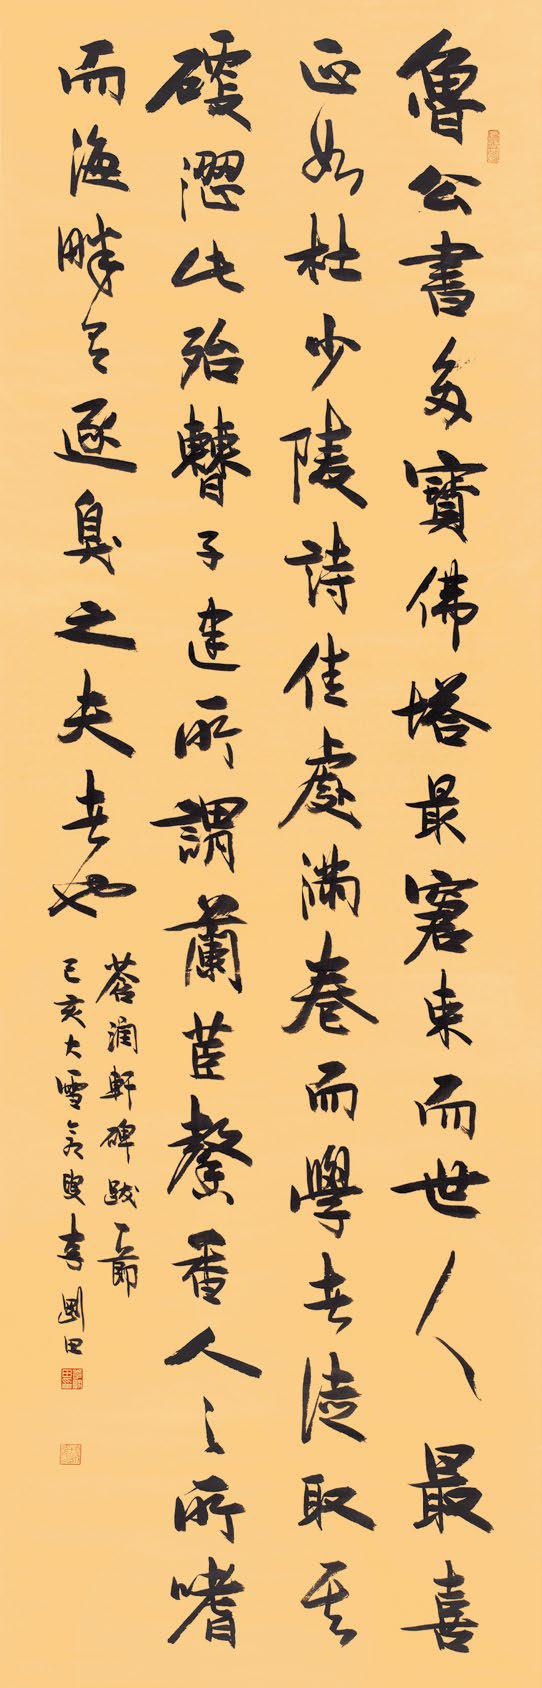 魯公書多寶佛塔最窘束而世人最喜
正如杜少陵詩佳處滿卷而學者徒取其
硬澀此殆贊子建所謂蘭茝馨香人之所嗜
而海畔有逐臭之夫者也
蒼潤軒碑跋一節
己亥大雪 李剛田